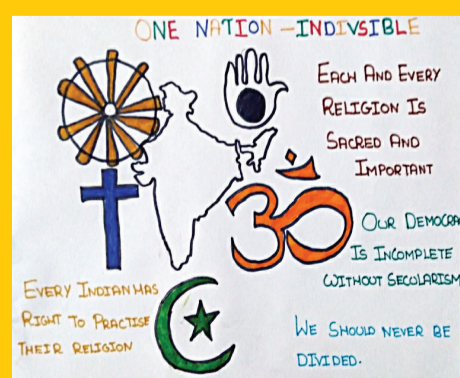 ONE NATION – INDIVSIBLE
EACH AND EVERY
RELIGION IS
SACRED AND
IMPORTANT
ॐ
OUR DEMOCRA
IS INCOMPLETE
WITHOUT SECULARISM
EVERY INDIAN HAS
RIGHT TO PRACTISE
THEIR RELIGION
WE SHOULD NEVER BE
DIVIDED.